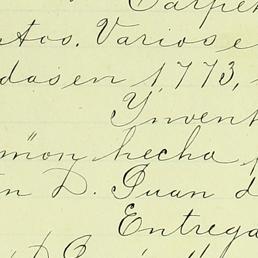 Carpet
ctos. Varios e
das en 1,773,
Ynvent
món hecha p
n D. Juan d
Entrega